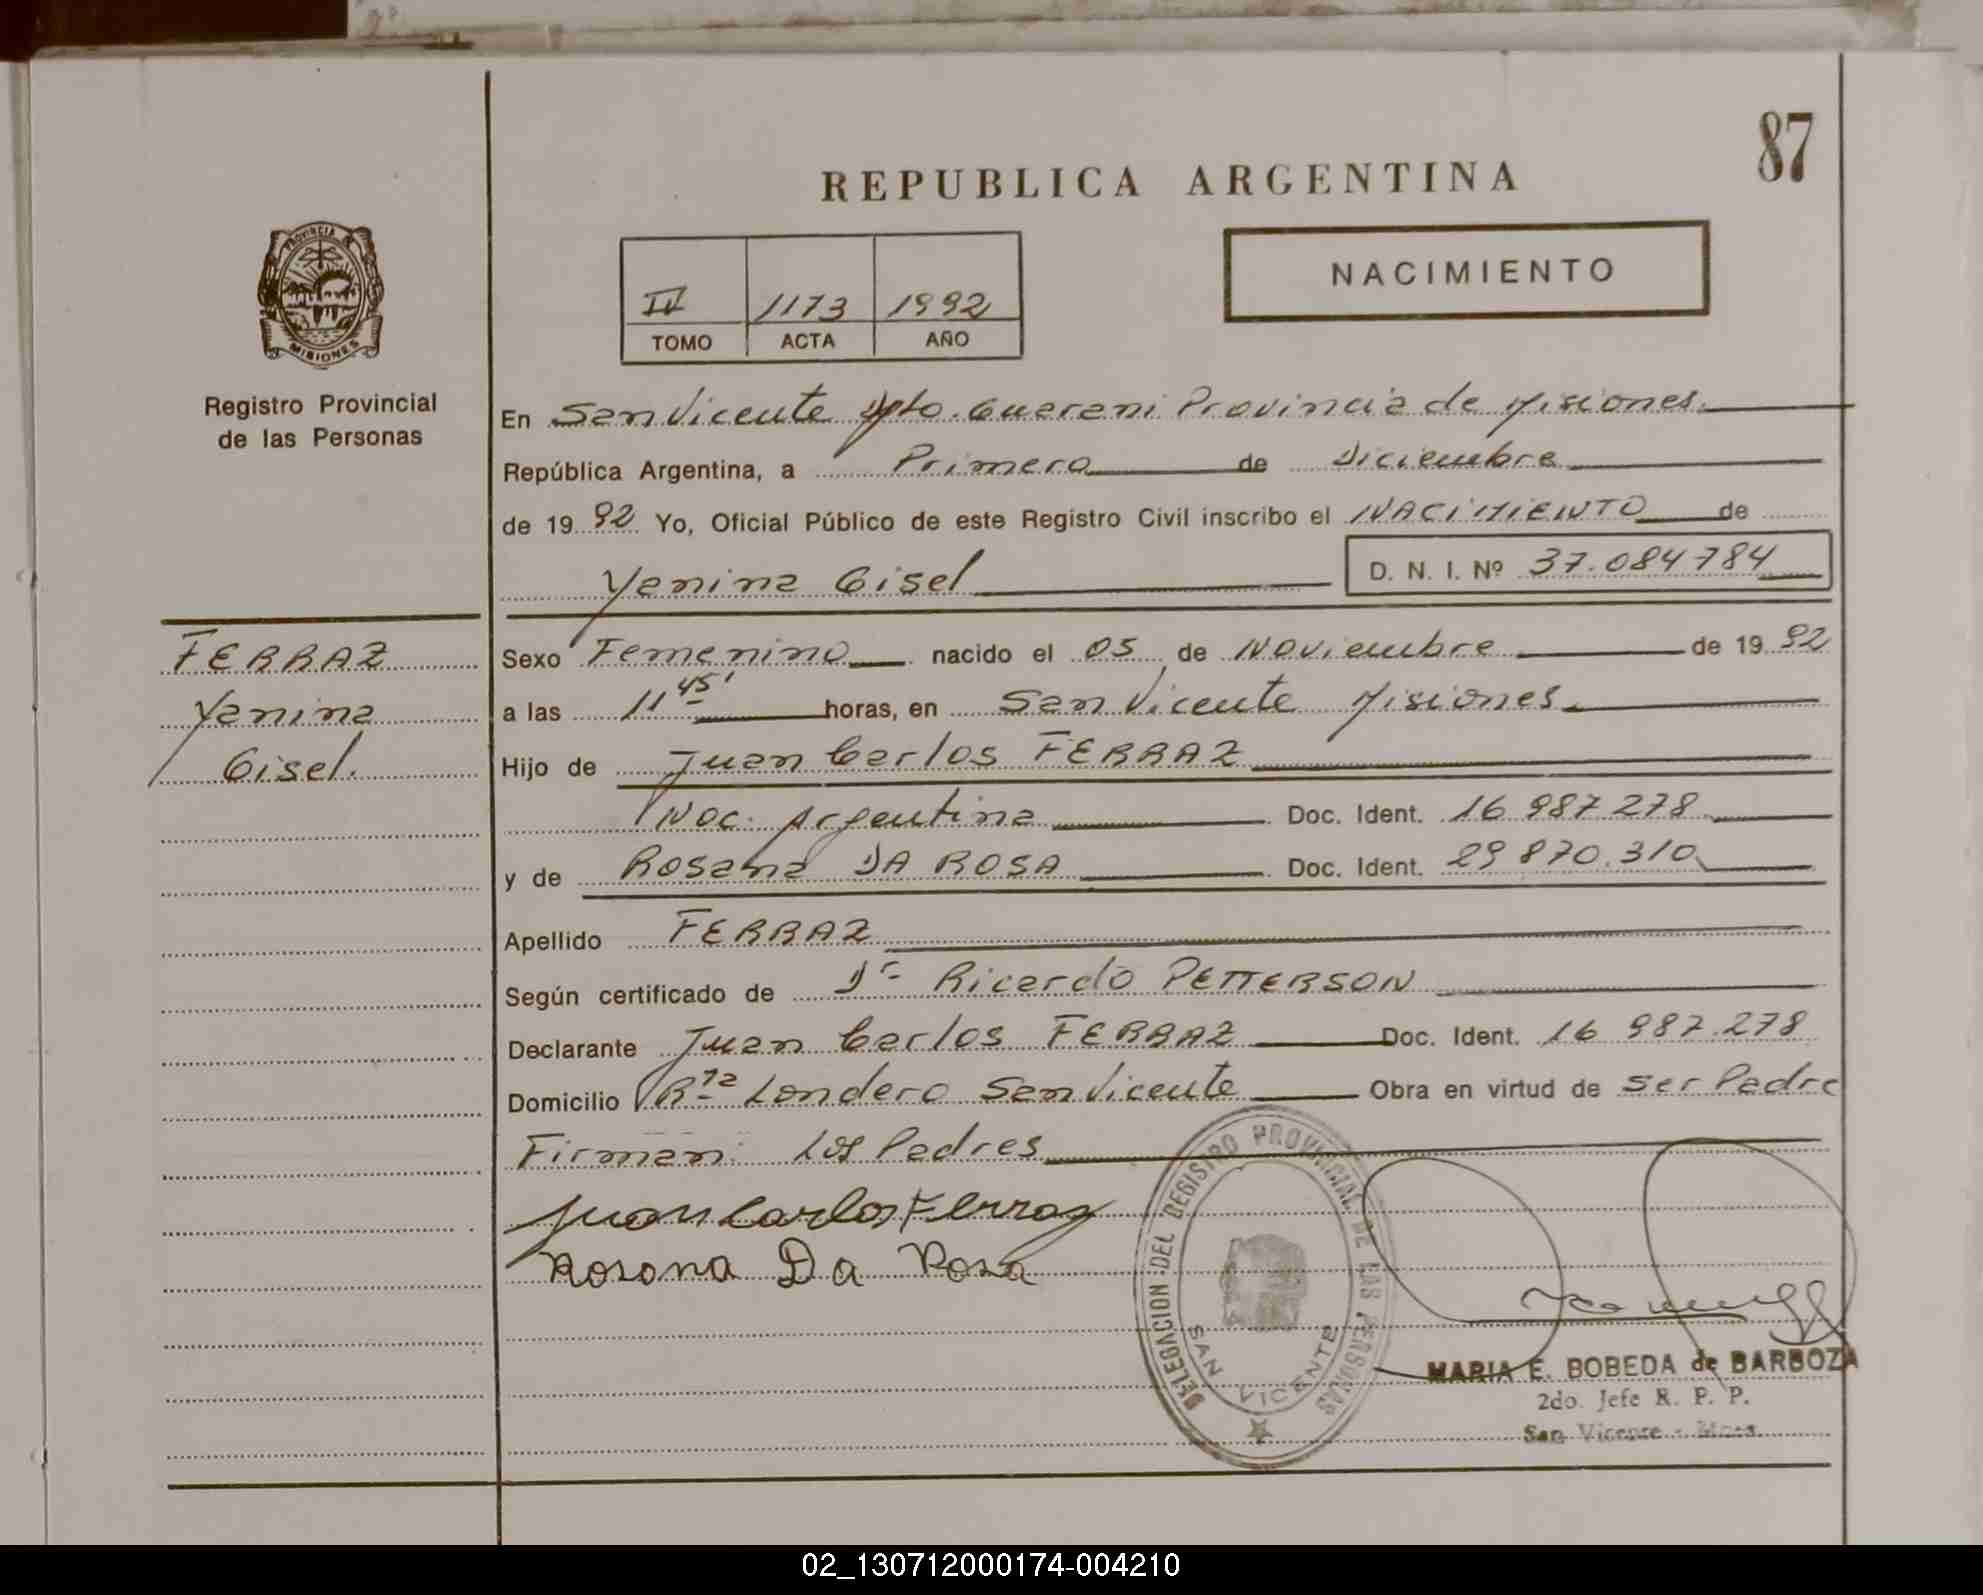 87
REPUBLICA ARGENTINA
PROVINCIA
MISIONES
Registro Provincial
de las Personas
IV 1173 1992
TOMO ACTA AÑO
NACIMIENTO
En San Vicente Dpto. Guarani Provincia de Misiones.
República Argentina, a Primero de Diciembre
de 1992 Yo, Oficial Público de este Registro Civil inscribo el NACIMIENTO de
Yanina Gisel D. N. I. Nº 37.084784
FERRAZ
Yanina
Gisel.
Sexo Femenino nacido el 05 de Noviembre de 1992
a las 11 45' horas, en San Vicente Misiones.
Hijo de Juan Carlos FERRAZ
Nac. Argentina Doc. Ident. 16 987.278
y de Rosana DA ROSA Doc. Ident. 29 870.310
Apellido FERRAZ
Según certificado de Dr Ricardo PETTERSON
Declarante Juan Carlos FERRAZ Doc. Ident. 16 987.278
Domicilio Rta Londero San Vicente Obra en virtud de ser Padre
Firman: Los Padres
Juan Carlos Ferraz
Rosana Da Rosa
DELEGACION DEL REGISTRO PROVINCIAL DE LAS PERSONAS
SAN VICENTE
MARIA E. BOBEDA de BARBOZA
2do. Jefe R. P. P.
San Vicente - Mnes.
02_130712000174-004210